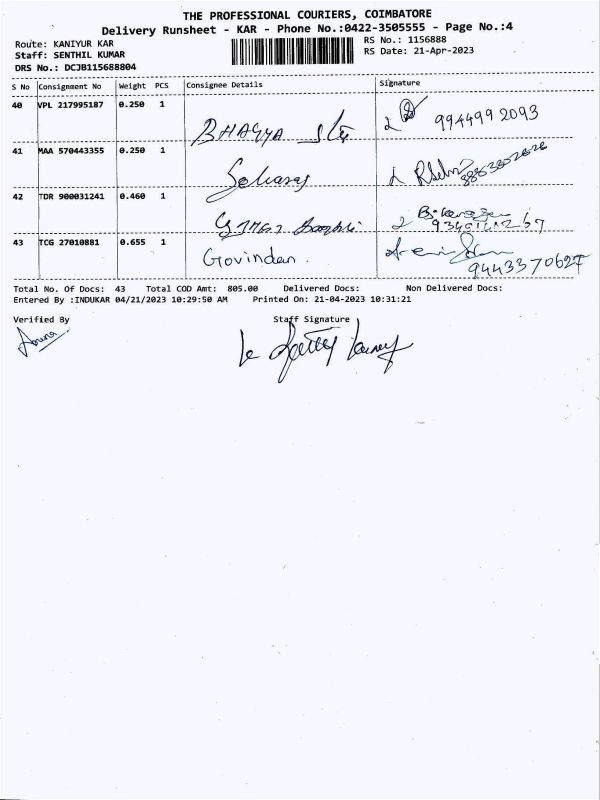 THE PROFESSIONAL COURIERS, COIMBATORE
Delivery Runsheet - KAR - Phone No.:0422-3505555 - Page No.:4
Route: KANIYUR KAR
RS No.: 1156888
Staff: SENTHIL KUMAR
RS Date: 21-Apr-2023
DRS No.: DCJB115688804
S No Consignment No Weight PCS Consignee Details Signature
40 VPL 217995187 0.250 1
BHAGYA 9944992093
41 MAA 570443355 0.250 1
Selvaraj
42 TDR 900031241 0.460 1
43 TCG 27010881 0.655 1
Govindan. 9443370627
Total No. Of Docs: 43 Total COD Amt: 805.00 Delivered Docs: Non Delivered Docs:
Entered By :INDUKAR 04/21/2023 10:29:50 AM Printed On: 21-04-2023 10:31:21
Verified By Staff Signature